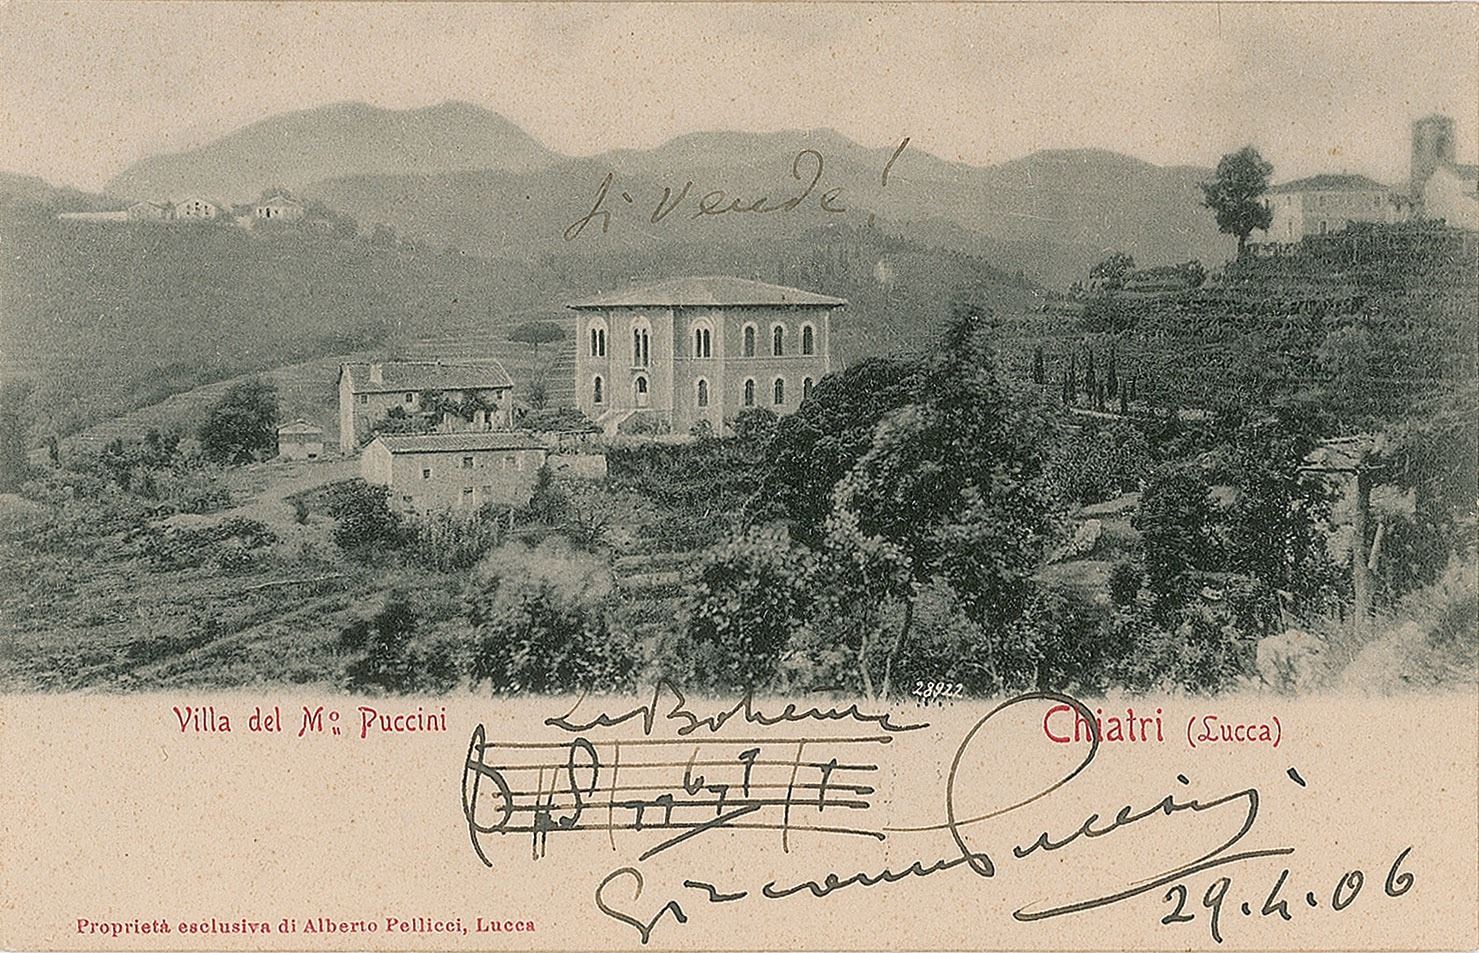 Si vende!
28922
Villa del Mo. Puccini
La Bohème
Chiatri (Lucca)
Giacomo Puccini
29.4.06
Proprietà esclusiva di Alberto Pellicci, Lucca